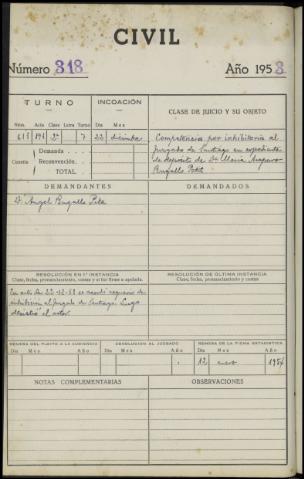 CIVIL
Número 318 Año 1953
TURNO
INCOACIÓN
CLASE DE JUICIO Y SU OBJETO
Núm. Acta Clase Letra Turno Día Mes
2ª 7 22 diciembre
Competencia por inhibitoria al
Juzgado de Santiago en expediente
de depósito de Dª María Amparo
Cuantía
Demanda
Reconvención
TOTAL
DEMANDANTES
DEMANDADOS
D. Angel
RESOLUCIÓN EN 1ª INSTANCIA
Clase, fecha, pronunciamiento, costas y si fue firme o apelada.
RESOLUCIÓN DE ÚLTIMA INSTANCIA
Clase, fecha, pronunciamiento y costas
En auto de 22-12-53 se acordó requerir de
inhibición al Juzgado de Santiago. Luego
desistió el actor.
REMESA DEL PLEITO A LA AUDIENCIA
DEVOLUCIÓN AL JUZGADO
REMESA DE LA FICHA ESTADÍSTICA
Día Mes Año Día Mes Año Día Mes Año
12 enero 1954
NOTAS COMPLEMENTARIAS
OBSERVACIONES